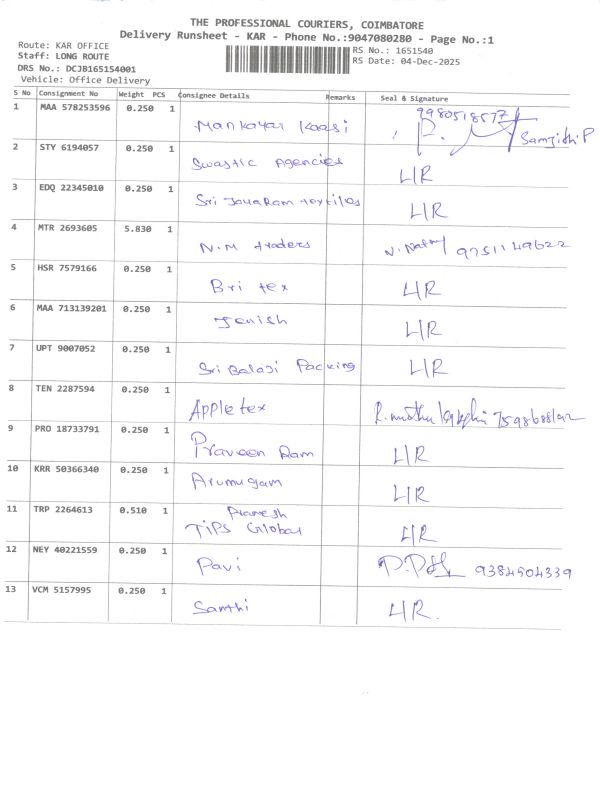 THE PROFESSIONAL COURIERS, COIMBATORE
Delivery Runsheet - KAR - Phone No.:9047080280 - Page No.:1
Route: KAR OFFICE
RS No.: 1651540
Staff: LONG ROUTE
RS Date: 04-Dec-2025
DRS No.: DCJB165154001
Vehicle: Office Delivery
S No Consignment No Weight PCS Consignee Details Remarks Seal & Signature
1 MAA 578253596 0.250 1 Mankayar Kaasi 9980518577 Samjith P
2 STY 6194057 0.250 1 Swastic Agencies L/R
3 EDQ 22345010 0.250 1 Sri JayaRam textiles L/R
4 MTR 2693605 5.830 1 N.M traders 9751149622
5 HSR 7579166 0.250 1 Bri tex L/R
6 MAA 713139201 0.250 1 Jenish L/R
7 UPT 9007052 0.250 1 Sri Balaji Packing L/R
8 TEN 2287594 0.250 1 Apple tex R. muthu 7598688192
9 PRO 18733791 0.250 1 Praveen Ram L/R
10 KRR 50366340 0.250 1 Arumugam L/R
11 TRP 2264613 0.510 1 Pranesh
TiPS Global L/R
12 NEY 40221559 0.250 1 Pavi 9384504339
13 VCM 5157995 0.250 1 Santhi L/R.